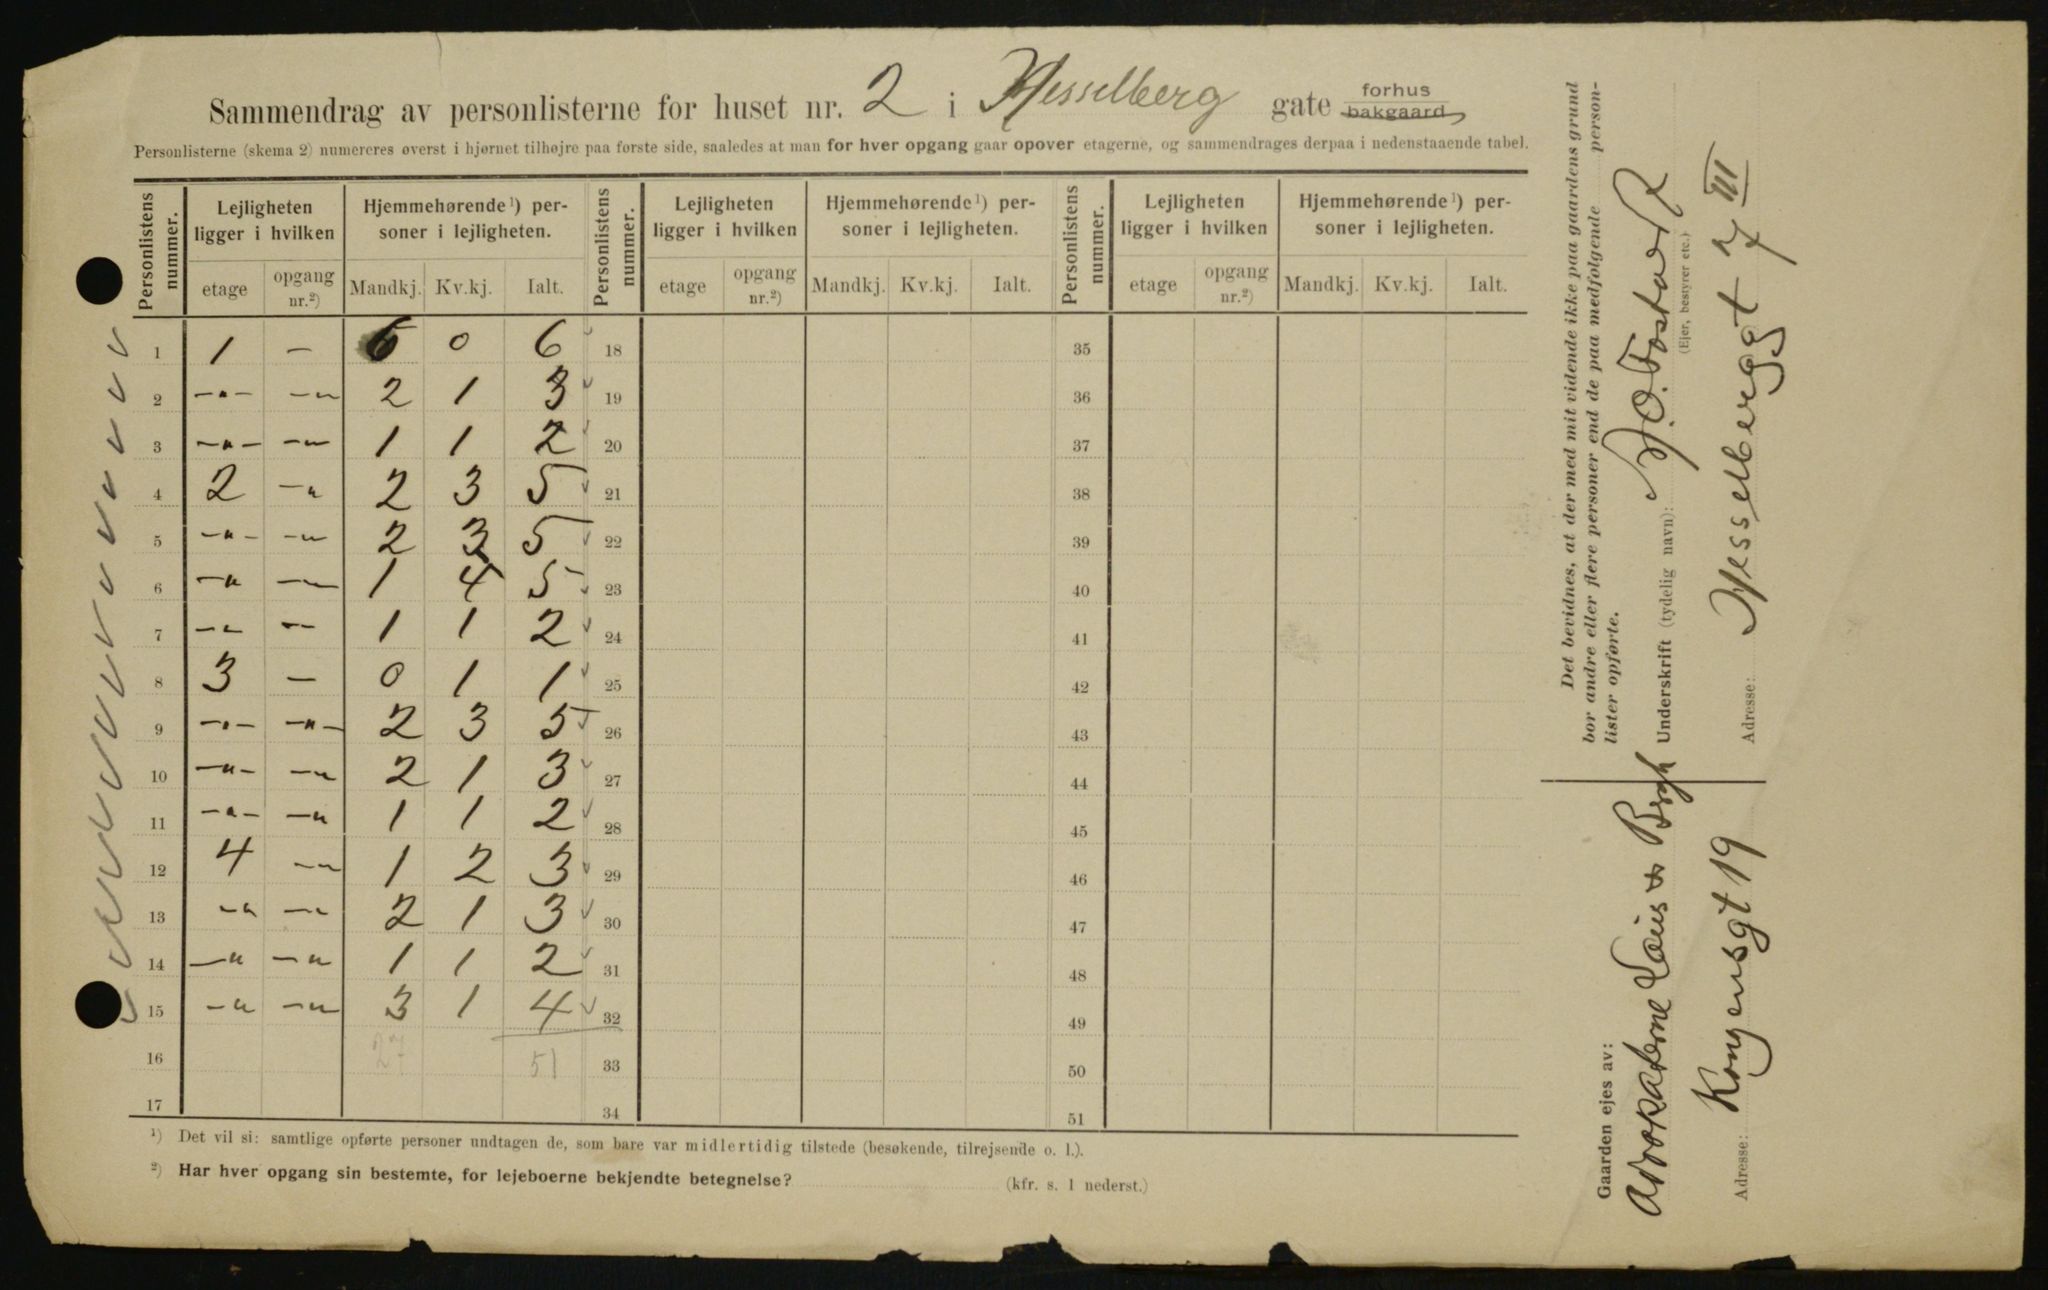 Sammendrag av personlisterne for huset nr. 2 i Hesselberg gate forhus bakgaard
Personlisterne (skema 2) numereres øverst i hjørnet tilhøjre paa første side, saaledes at man for hver opgang gaar opover etagerne, og sammendrages derpaa i nedenstaaende tabel.
Personlistens nummer. Lejligheten ligger i hvilken Hjemmehørende ¹) personer i lejligheten. Personlistens nummer. Lejligheten ligger i hvilken Hjemmehørende ¹) personer i lejligheten. Personlistens nummer. Lejligheten ligger i hvilken Hjemmehørende ¹) personer i lejligheten.
etage opgang nr.²) Mandkj. Kv.kj. Ialt. etage opgang nr.²) Mandkj. Kv.kj. Ialt. etage opgang nr.²) Mandkj. Kv.kj. Ialt.
1 1 – 6 0 6 18 35
2 –"– –" 2 1 3 19 36
3 –"– –" 1 1 2 20 37
4 2 –" 2 3 5 21 38
5 –"– –" 2 3 5 22 39
6 –" –" 1 4 5 23 40
7 –"– –"– 1 1 2 24 41
8 3 – 0 1 1 25 42
9 –"– –"– 2 3 5 26 43
10 –"– –" 2 1 3 27 44
11 –"– –" 1 1 2 28 45
12 4 –" 1 2 3 29 46
13 –" –" 2 1 3 30 47
14 –" –" 1 1 2 31 48
15 –" –" 3 1 4 32 49
16 27 51 33 50
17 34 51
¹) Det vil si: samtlige opførte personer undtagen de, som bare var midlertidig tilstede (besøkende, tilrejsende o. l.).
²) Har hver opgang sin bestemte, for lejeboerne bekjendte betegnelse? (kfr. s. 1 nederst.)
Det bevidnes, at der med mit vidende ikke paa gaardens grund
bor andre eller flere personer end de paa medfølgende person-
lister opførte.
Underskrift (tydelig navn):
(Ejer, bestyrer etc.)
Adresse: Hesselberggt 7 III
Gaarden ejes av:
Advokaterne & Bergh
Adresse: Kongensgt 19